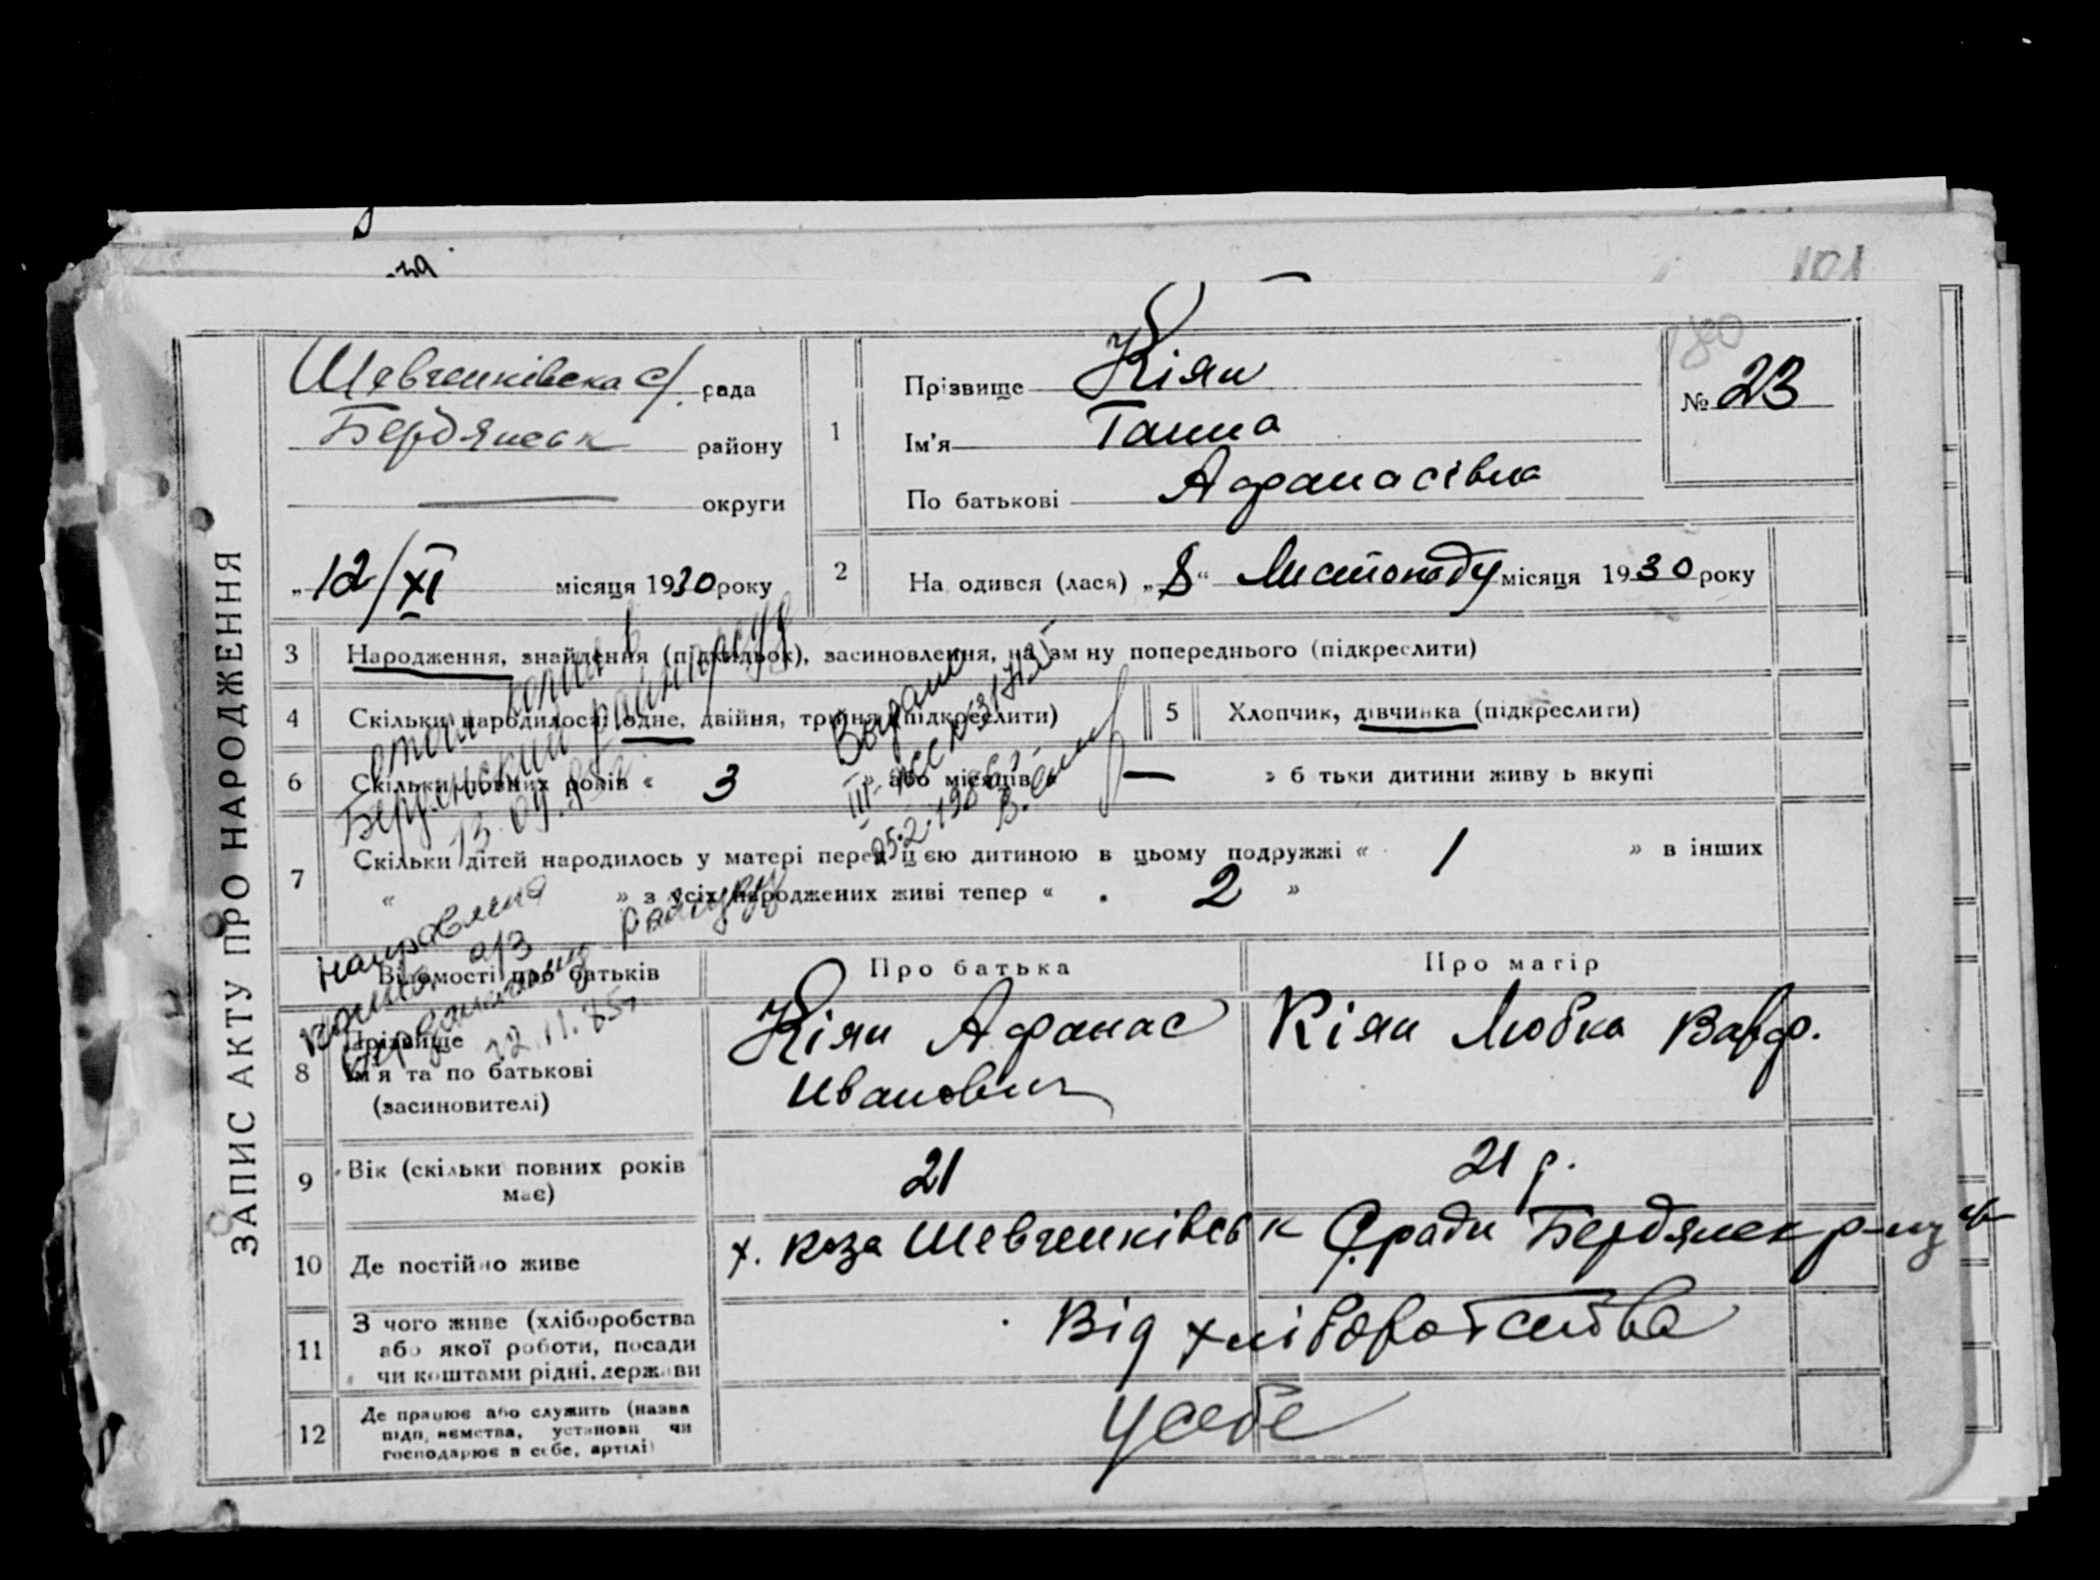 101
180
ЗАПИС АКТУ ПРО НАРОДЖЕННЯ
Шевченківска с/. рада
Бердянськ району
округи
„12/XI місяця 1930 року
1
Прізвище Кіян
Ім'я Ганна
По батькові Афанасівна
№ 23
2
На одився (лася) „8“ Листопаду місяця 1930 року
3 Народження, знайдення (підкидьок), засиновлення, на зм ну попереднього (підкреслити)
4 Скільки народилося: одне, двійня, трійня (підкреслити)
5 Хлопчик, дівчинка (підкреслити)
6 Скільки повних років « 3 » або місяців « — » б тьки дитини живу ь вкупі
7 Скільки дітей народилось у матері перед цією дитиною в цьому подружжі « 1 » в інших
« » з усіх народжених живі тепер « 2 »
копия в
Бердянский
13.09.
Выдано
III-
25.2.198
Направлена
а/з
12.11.85г
Відомості про батьків
Про батька
Про матір
8 Прізвище
ім'я та по батькові
(засиновителі)
Кіян Афанас
Иванович
Кіян Любка Варф.
9 Вік (скільки повних років
має)
21
21 р.
10 Де постійно живе
х. Коза Шевченківськ С.ради Бердянск р-ну
11 З чого живе (хліборобства
або якої роботи, посади
чи коштами рідні, держави
Від хліборобства
12 Де працює або служить (назва
підп иємства, установи чи
господарює в себе, артілі)
У себе